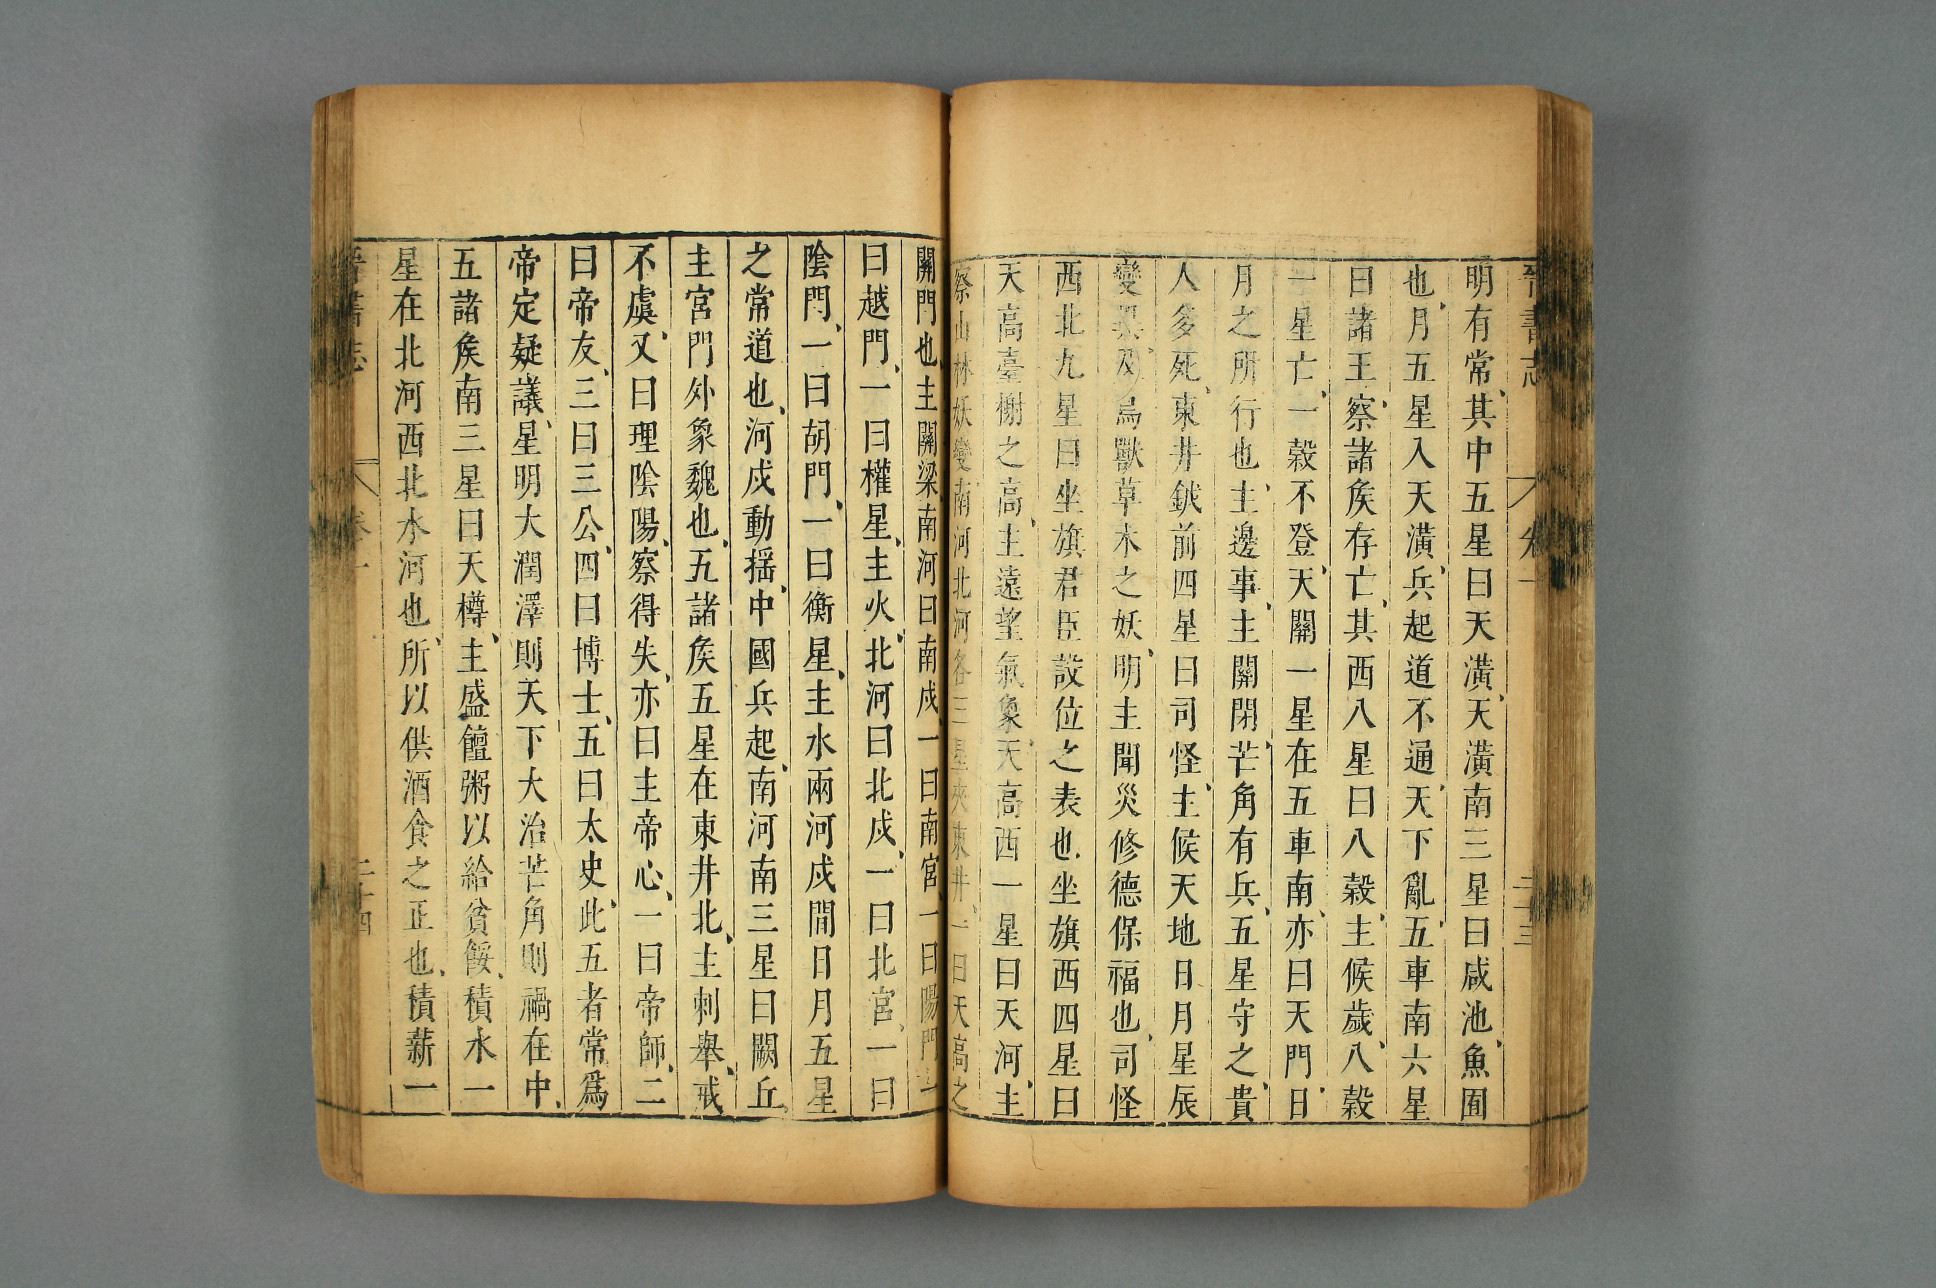 晉書志 卷一 二十三
明有常、其中五星曰天潢、天潢南三星曰咸池、魚囿
也、月五星入天潢、兵起、道不通、天下亂、五車南六星
曰諸王、察諸矦存亡、其西八星曰八榖、主候歲、八榖
一星亡、一榖不登、天關一星在五車南、亦曰天門、日
月之所行也、主邊事、主關閉、芒角有兵、五星守之、貴
人多死、東井鉞前四星曰司怪、主候天地日月星辰
變異、及鳥獸草木之妖、明主聞災修德保福也、司怪
西北九星曰坐旗、君臣設位之表也、坐旗西四星曰
天高、臺榭之高、主遠望氣象、天高西一星曰天河、主
察山林妖變、南河北河各三星、夾東井、一曰天高之
關門也、主關梁、南河曰南戍、一曰南宮、一曰陽門、一
曰越門、一曰權星、主火、北河曰北戍、一曰北宮、一曰
陰門、一曰胡門、一曰衡星、主水、兩河戍間日月五星
之常道也、河戍動搖、中國兵起、南河南三星曰闕丘
主宮門外象魏也、五諸矦五星在東井北、主刺舉、戒
不虞、又曰理陰陽、察得失、亦曰主帝心、一曰帝師、二
曰帝友、三曰三公、四曰博士、五曰太史、此五者常爲
帝定疑議、星明大潤澤則天下大治、芒角則禍在中、
五諸矦南三星曰天樽、主盛饘粥以給貧餒、積水一
星在北河西北、水河也、所以供酒食之正也、積薪一
晉書志 卷一 二十四